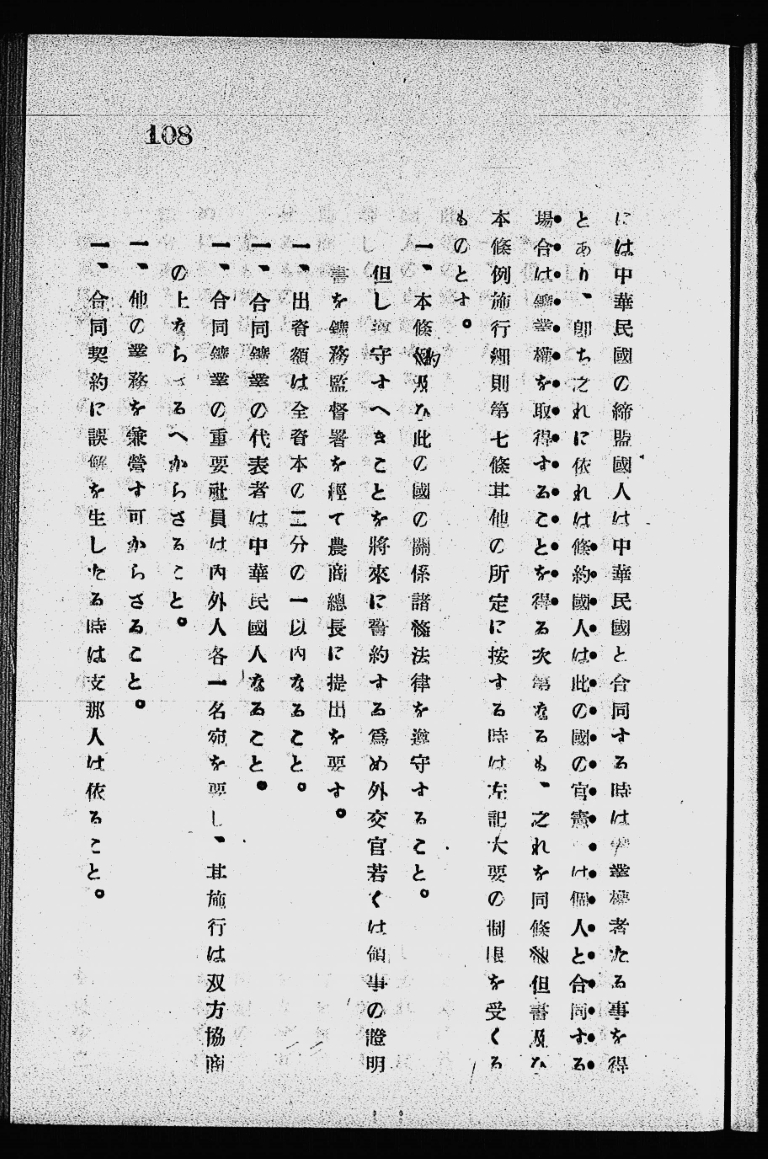 108
には中華民國の締盟國人は中華民國と合同する時は業權者たる事を得
とあり、卽ち之れに依れは條約國人は此の國の官憲は個人と合同する
場合は鑛業權を取得することを得る次第なるも、之れを同條但書及ひ
本條例施行細則第七條其他の所定に按する時は左記大要の制限を受くる
ものとす。
一、本條約及ひ此の國の關係諸條法律を遵守すること。
但し遵守すへきことを將來に誓約する爲め外交官若くは領事の證明
書を鑛務監督署を經て農商總長に提出を要す。
一、出資額は全資本の二分の一以內なること。
一、合同鑛業の代表者は中華民國人なること。
一、合同鑛業の重要社員は內外人各一名宛を要し、其施行は双方協商
の上ならさるへからさること。
一、他の業務を兼營す可からさること。
一、合同契約に誤解を生したる時は支那人は依ること。